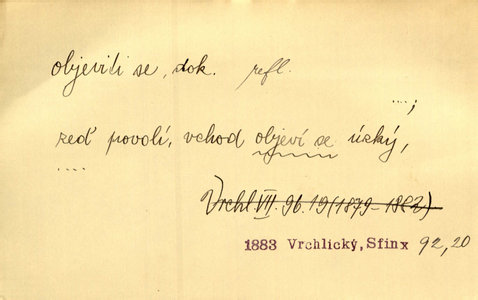 objeviti se, dok. refl.
...;
zeď povolí, vchod objeví se úzký,
....
Vrchl VII. 96. 19 (1879-1883)
1883 Vrchlický, Sfinx 92,20